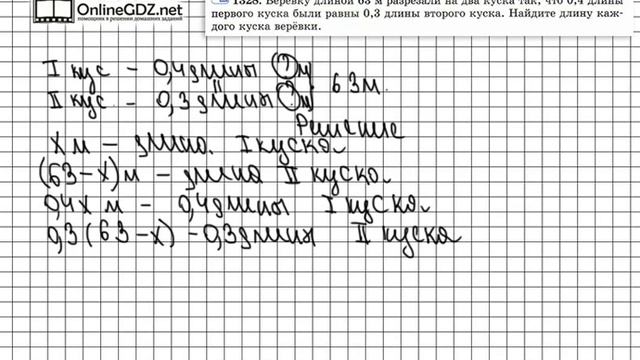 OnlineGDZ.net
Помощник в решении домашних заданий
1328. Верёвку длиной 63 м разрезали на два куска так, что 0,4 длины
первого куска были равны 0,3 длины второго куска. Найдите длину каж-
дого куска верёвки.
I кус – 0,4 длины (?) м
II кус – 0,3 длины (?) м
63 м.
Решение
x м – длина I куска.
(63-x) м – длина II куска.
0,4x м – 0,4 длины I куска.
0,3(63-x) – 0,3 длин II куска